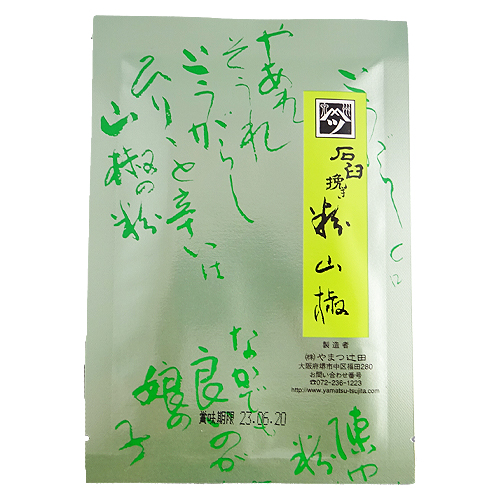 石臼
挽き
粉山椒
製造者
(株)やまつ辻田
大阪府堺市中区福田280
お問い合わせ番号
☎072-236-1223
http://www.yamatsu-tsujita.com
やあれ
そうれ
とうがらし
ひりゝと辛いは
山椒の粉
なかでも
良いのが
娘の
粉
賞味期限 23.06.20